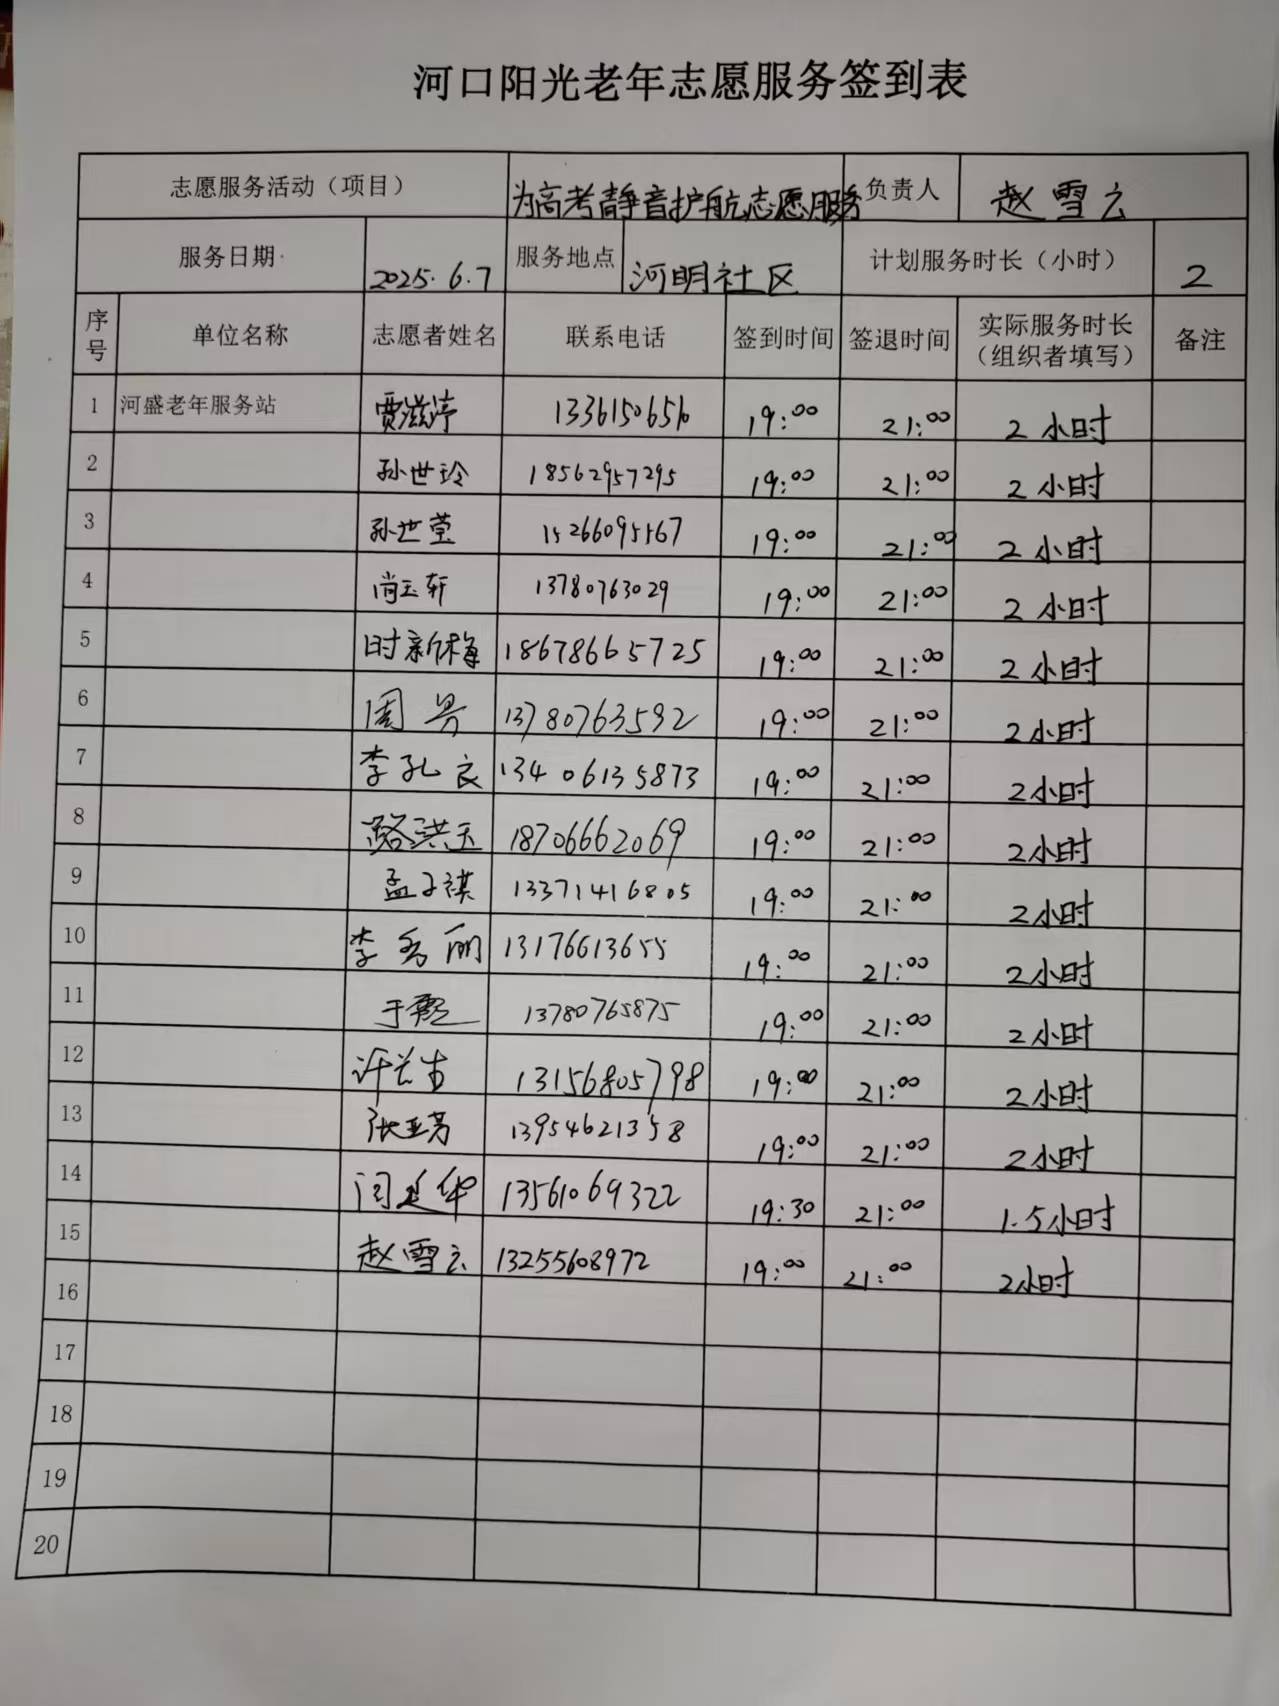 河口阳光老年志愿服务签到表
志愿服务活动（项目） 为高考静音护航志愿服务 负责人 赵雪云
服务日期 2025.6.7 服务地点 河明社区 计划服务时长（小时） 2
序号 单位名称 志愿者姓名 联系电话 签到时间 签退时间 实际服务时长（组织者填写） 备注
1 河盛老年服务站 贾滋渟 19:00 21:00 2小时
2 孙世玲 18562957295 19:00 21:00 2小时
3 孙世莹 15266095567 19:00 21:00 2小时
4 尚玉轩 13780763029 19:00 21:00 2小时
5 时新梅 18678665725 19:00 21:00 2小时
6 周 13780763592 19:00 21:00 2小时
7 李孔良 13406135873 19:00 21:00 2小时
8 路洪玉 18706662069 19:00 21:00 2小时
9 孟子祺 13371416805 19:00 21:00 2小时
10 李秀丽 13176613655 19:00 21:00 2小时
11 于 13780765875 19:00 21:00 2小时
12 许 13156805798 19:00 21:00 2小时
13 张亚芳 13954621358 19:00 21:00 2小时
14 闫廷华 13561069322 19:30 21:00 1.5小时
15 赵雪云 13255608972 19:00 21:00 2小时
16
17
18
19
20